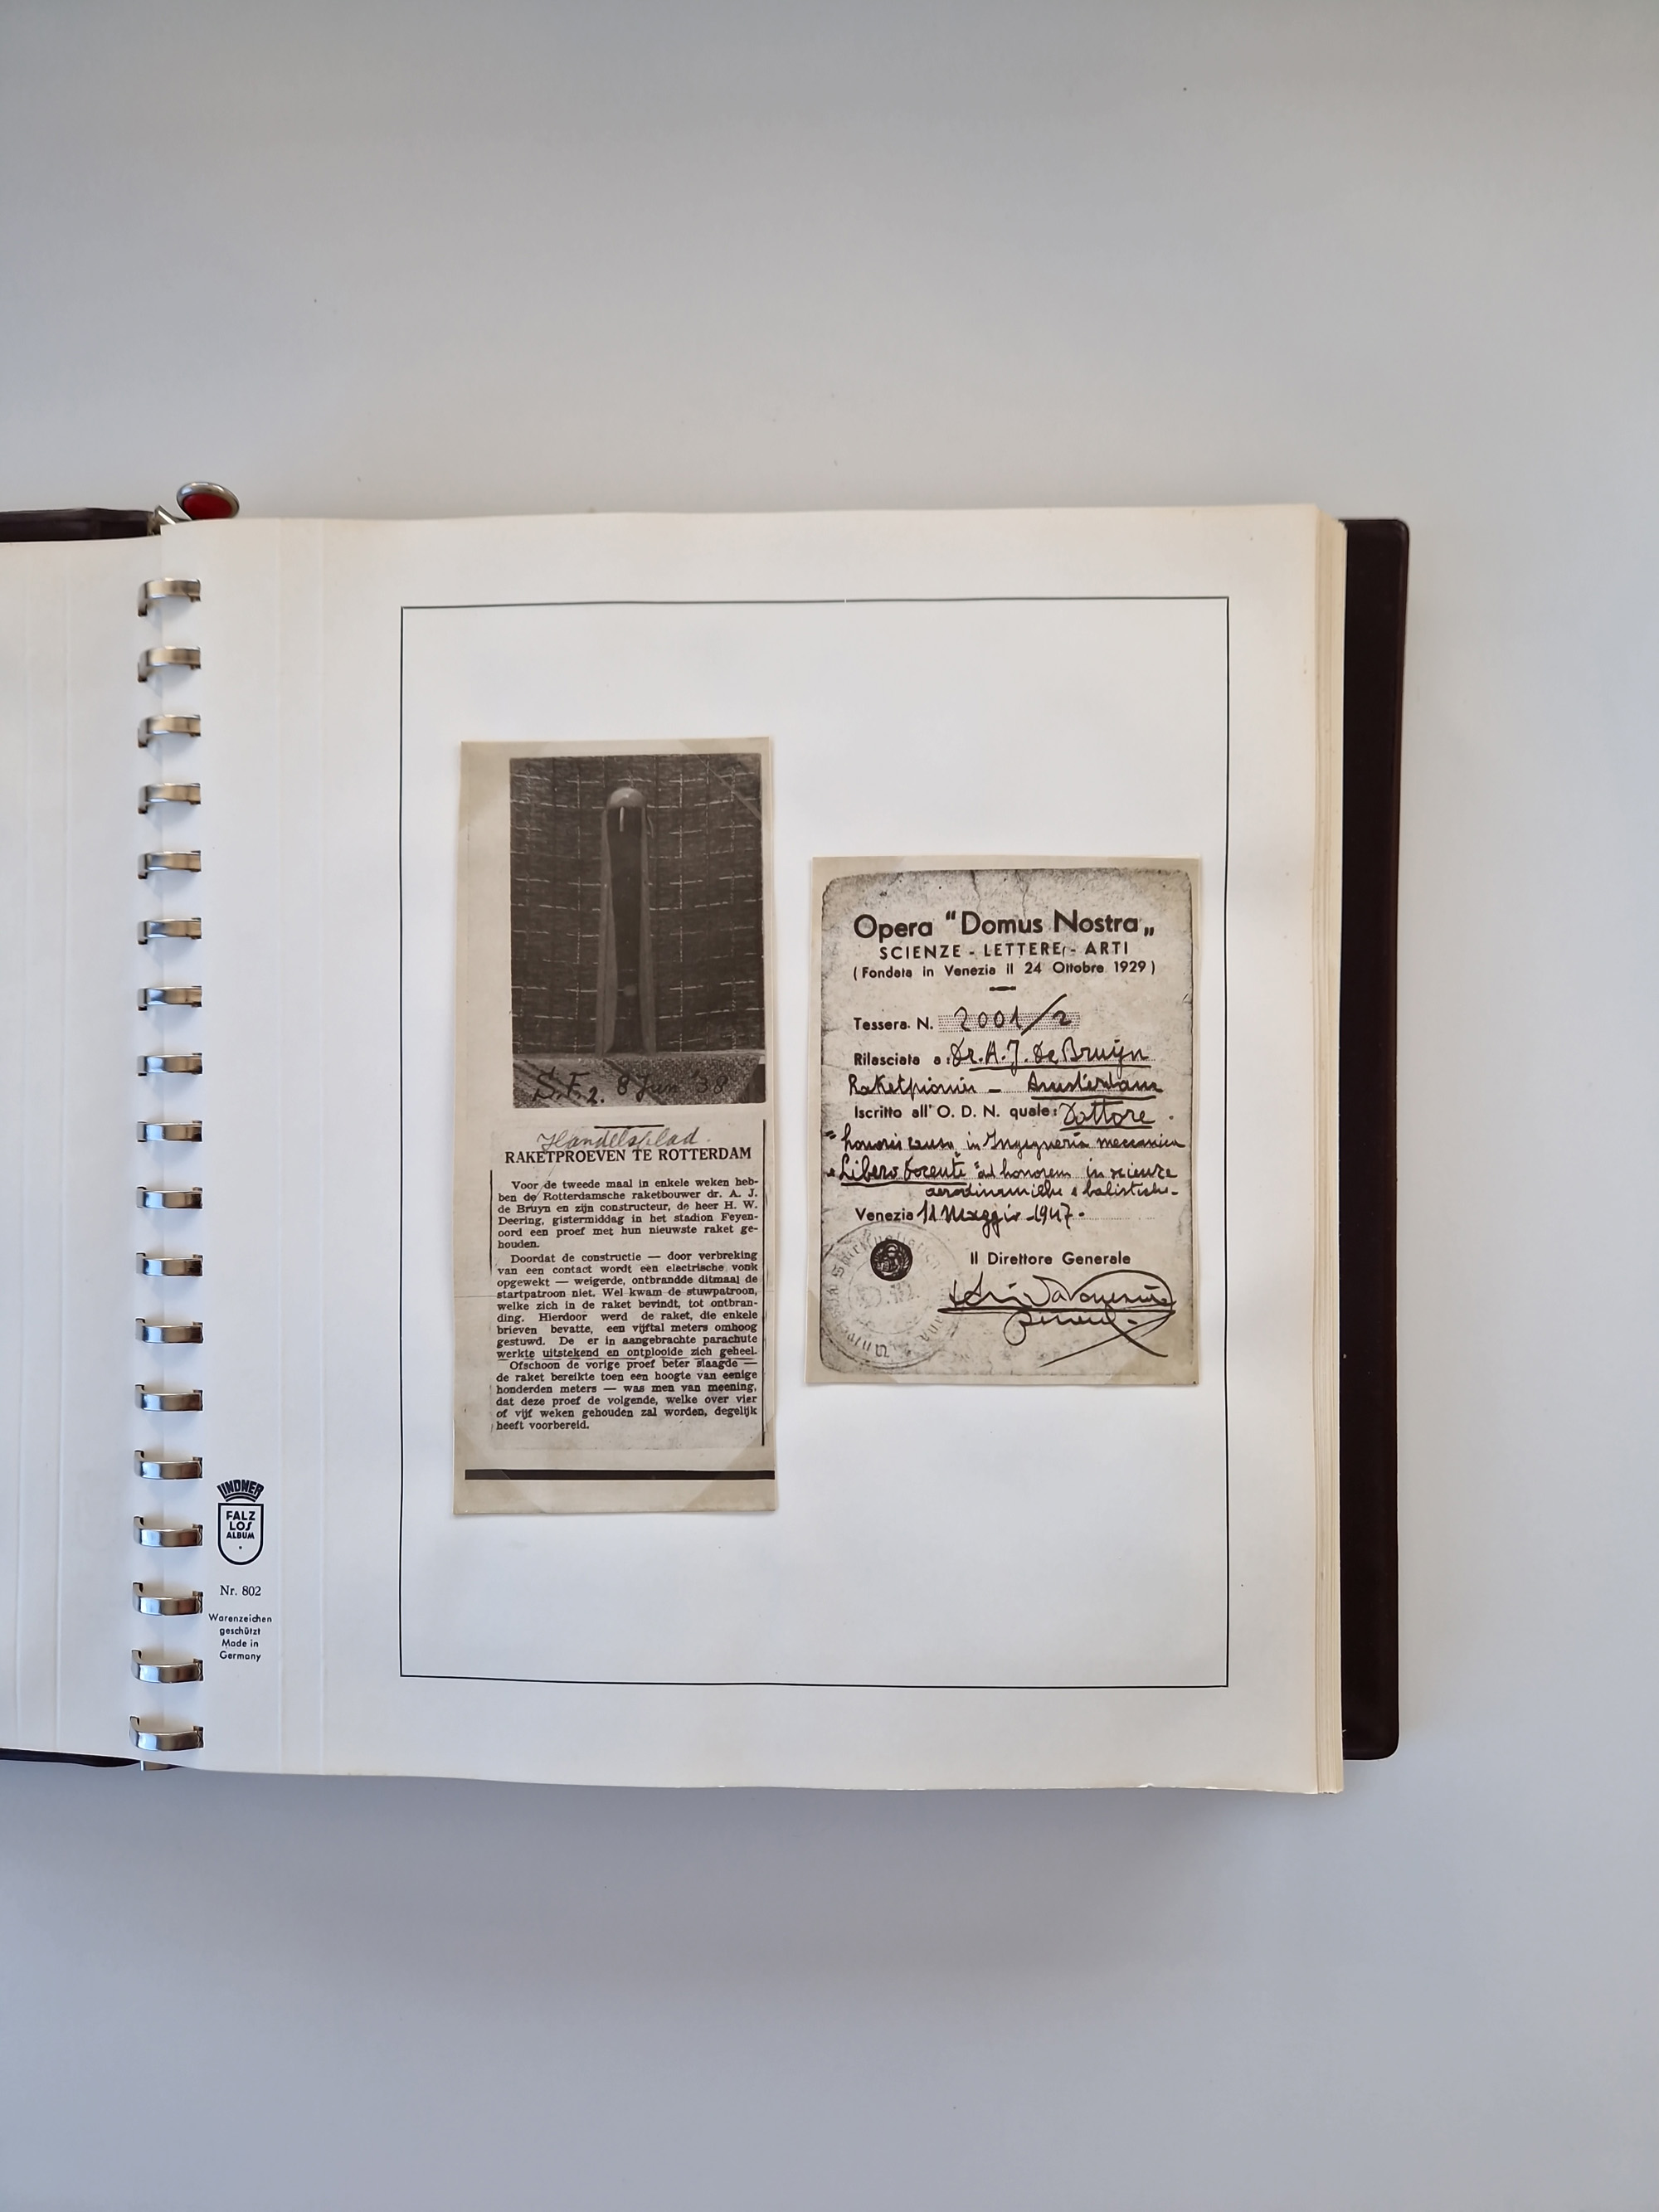 S.F.2. 8 Jun '38
Handelsblad.
RAKETPROEVEN TE ROTTERDAM
Voor de tweede maal in enkele weken heb-
ben de Rotterdamsche raketbouwer dr. A. J.
de Bruyn en zijn constructeur, de heer H. W.
Deering, gistermiddag in het stadion Feyen-
oord een proef met hun nieuwste raket ge-
houden.
Doordat de constructie — door verbreking
van een contact wordt een electrische vonk
opgewekt — weigerde, ontbrandde ditmaal de
startpatroon niet. Wel kwam de stuwpatroon,
welke zich in de raket bevindt, tot ontbran-
ding. Hierdoor werd de raket, die enkele
brieven bevatte, een vijftal meters omhoog
gestuwd. De er in aangebrachte parachute
werkte uitstekend en ontplooide zich geheel.
Ofschoon de vorige proef beter slaagde —
de raket bereikte toen een hoogte van eenige
honderden meters — was men van meening,
dat deze proef de volgende, welke over vier
of vijf weken gehouden zal worden, degelijk
heeft voorbereid.
Opera "Domus Nostra„
SCIENZE - LETTERE - ARTI
(Fondata in Venezia il 24 Ottobre 1929)
Tessera N. 2001/2
Rilasciata a: Dr. A. J. De Bruijn
Raketpionier - Amsterdam
Iscritto all' O. D. N. quale: Dottore
"honoris causa" in Ingegneria meccanica
"Libero Docente" ad honorem in scienze
aerodinamiche e balistiche.
Venezia 11 Maggio 1947.
Il Direttore Generale
LINDNER
FALZ
LOS
ALBUM
Nr. 802
Warenzeichen
geschützt
Made in
Germany